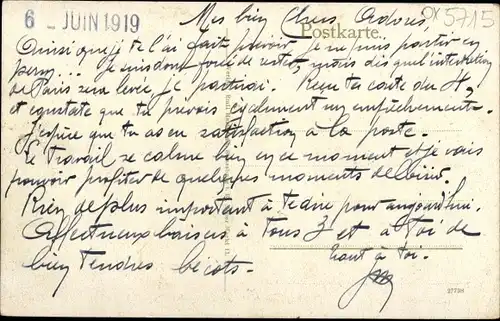 6 - JUIN 1919
Mes bien Chers Adorés,
5715
Postkarte.
Ainsi que je te l'ai fait prévoir, je ne puis partir en
perm... Je suis donc forcé de rester, mais dès que l'interdiction
de Paris sera levée, je partirai. Reçu ta carte du
et constate que tu prévois également un empêchement.
J'espère que tu as eu satisfaction à la poste.
Le travail se calme bien en ce moment et je vais
pouvoir profiter de quelques moments de loisir.
Rien de plus important à te dire pour aujourd'hui.
Affectueux baisers à tous 3 et à toi de
bien tendres bécots.
tout à toi.
37799